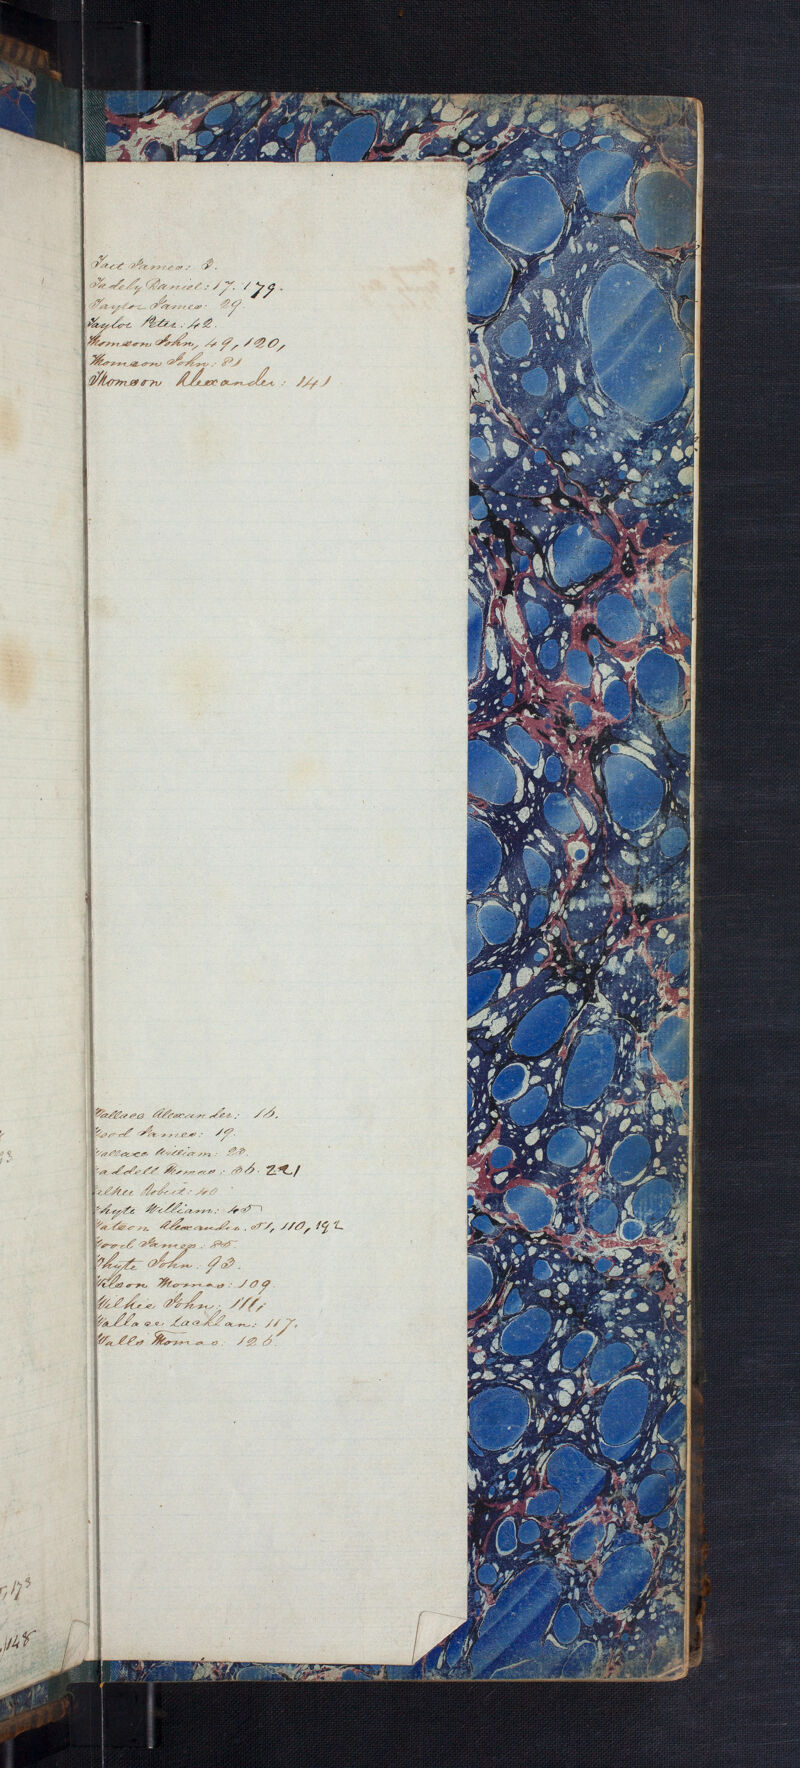 Tait James: 3.
Tadeby Daniel: 17. 179.
Taylor James: 29
Taylor Peter: 42.
Thomson John, 49, 120,
Thomson John: 81
Thomson Alexander: 141
Wallace Alexander: 16.
Wood James: 19.
Wallace William: 28.
Waddell Thomas: 36. 221
Walker Robert: 40
Whyte William: 45
Watson Alexander. 51, 110, 192
Wood James: 85.
Whyte John. 93.
Wilson Thomas: 109.
Wilkie John, 111,
Wallace Lachlan: 117.
Walls Thomas: 126.
173
148